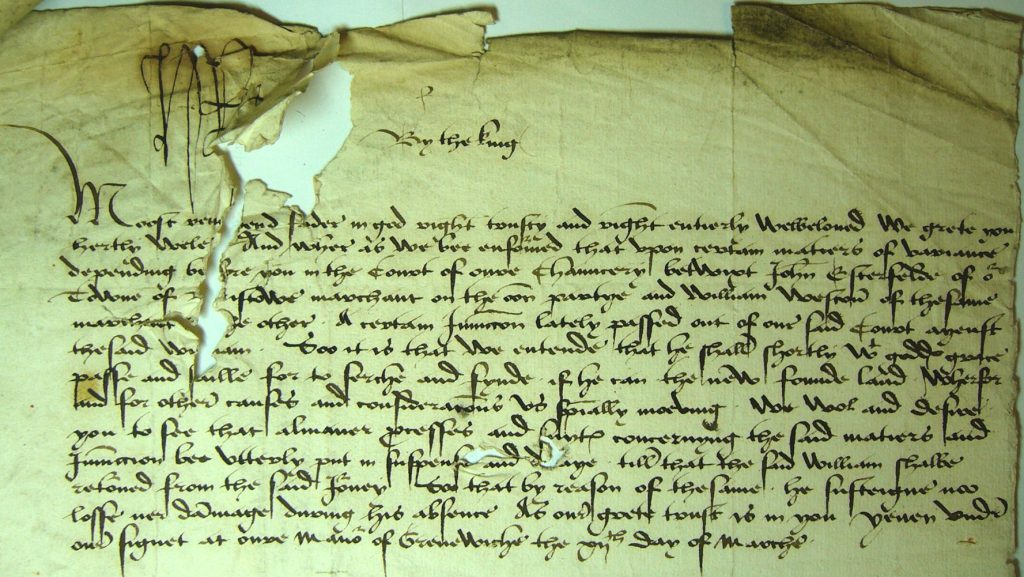 HR
By the king
Moost reverend fader in god right trusty and right entierly Welbeloved We grete you
hertly Wele And Where as We bee enformed that vpon certain matiers of variance
depending before you in the Court of oure Chauncery betwixt John Esterfelde of or
Towne of Bristowe marchant on the oon partye and William Weston of thesame
marchant the other A certain Iniunccion lately passed out of our said Court ayenst
thesaid William Soo it is that We entende that he shall shortly wt goddes grace
passe and saille for to serche and fynde if he can the new founde land Wherfor
and for other causes and consideracions vs specially moeving We Wol and desire
you to see that almaner processes and suytes concernyng the said matiers and
Iniunccion bee vtterly put in suspense and staye till that the said William shalbe
retorned from the said Jorney Soo that by reason of thesame he susteigne noo
losse ner dammage during his absence As our grete trust is in you yeven vndre
our signet at oure Manor of Grenewiche the xijth day of Marche